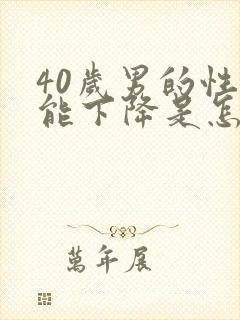 40歲男的性
能下降是怎
萬年展